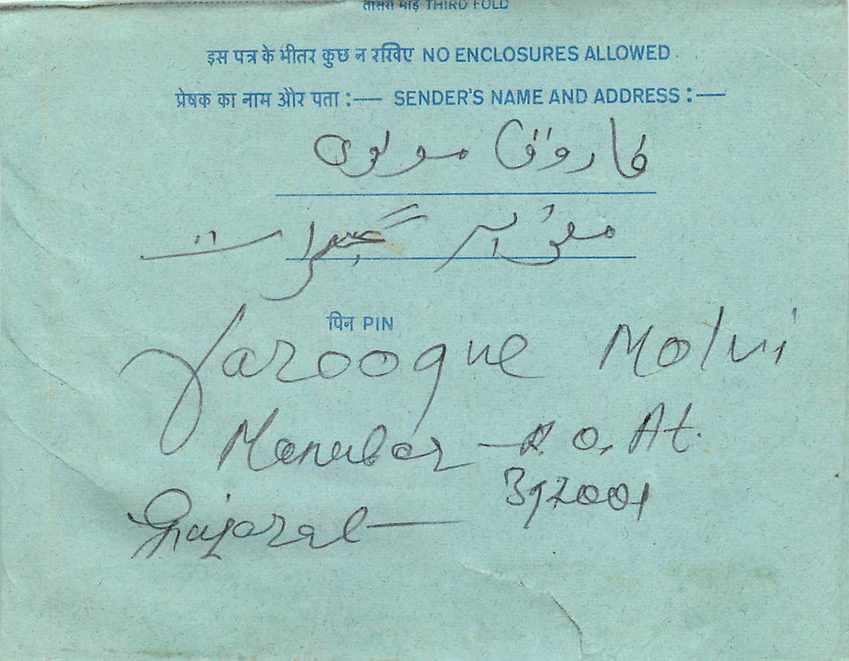 तीसरा मोड़ THIRD FOLD
इस पत्र के भीतर कुछ न रखिए NO ENCLOSURES ALLOWED
प्रेषक का नाम और पता :— SENDER'S NAME AND ADDRESS :—
فاروق مولوی
گجرات
पिन PIN
Farooque Molvi
Manubar — P.O. At.
392001
Ghajarat —